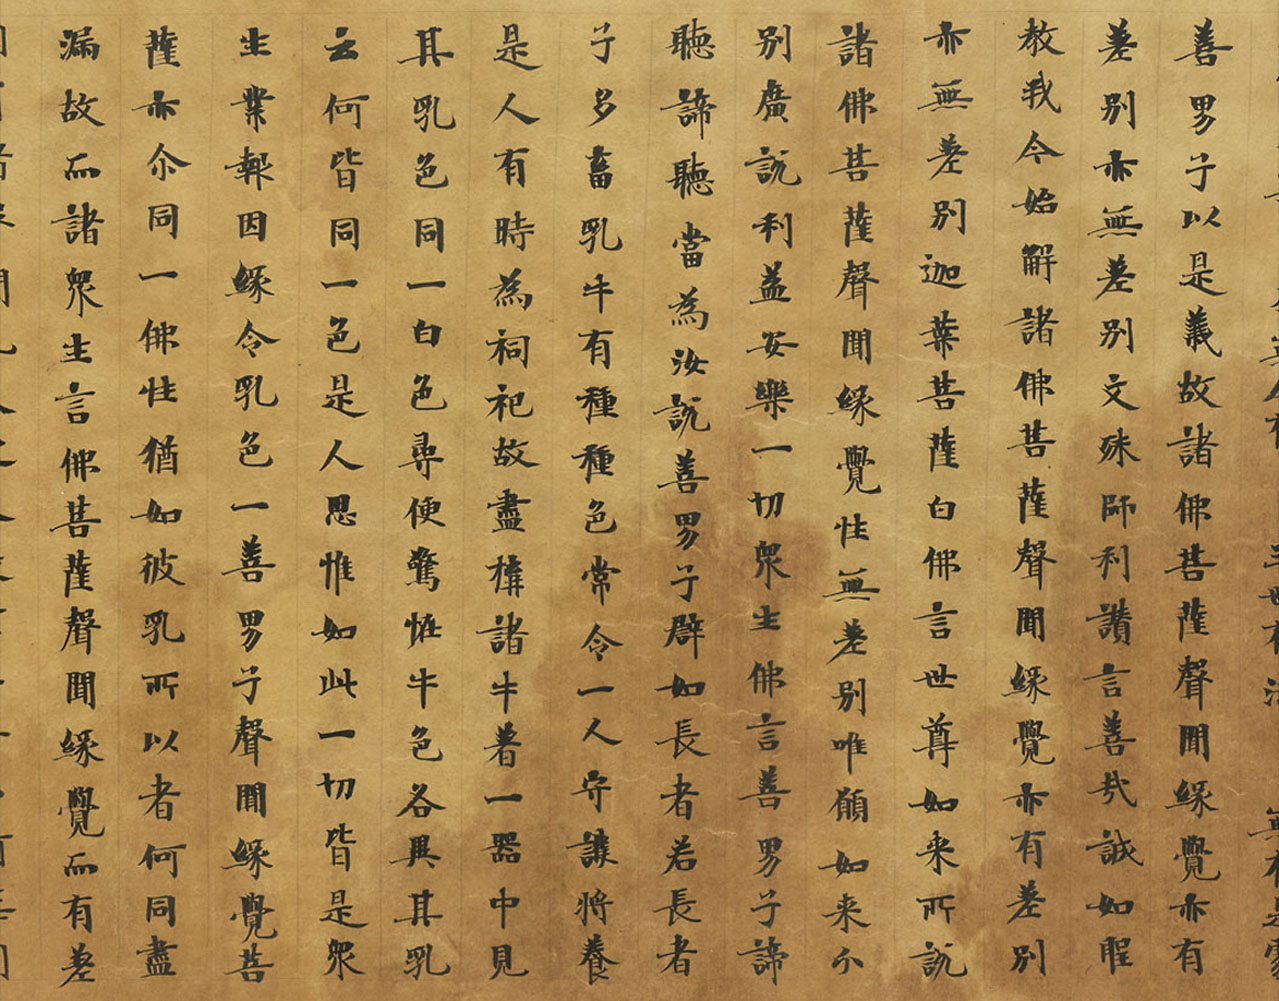 善男子以是義故諸佛菩薩聲聞緣覺亦有
差別亦無差別文殊師利讚言善哉誠如聖
教我今始解諸佛菩薩聲聞緣覺亦有差別
亦無差別迦葉菩薩白佛言世尊如来所說
諸佛菩薩聲聞緣覺性無差別唯願如来分
別廣說利益安樂一切眾生佛言善男子諦
聽諦聽當為汝說善男子辟如長者若長者
子多畜乳牛有種種色常令一人守護將養
是人有時為祠祀故盡搆諸牛著一器中見
其乳色同一白色尋便驚恠牛色各異其乳
云何皆同一色是人思惟如此一切皆是眾
生業報因緣令乳色一善男子聲聞緣覺菩
薩亦尒同一佛性猶如彼乳所以者何同盡
漏故而諸眾生言佛菩薩聲聞緣覺而有差